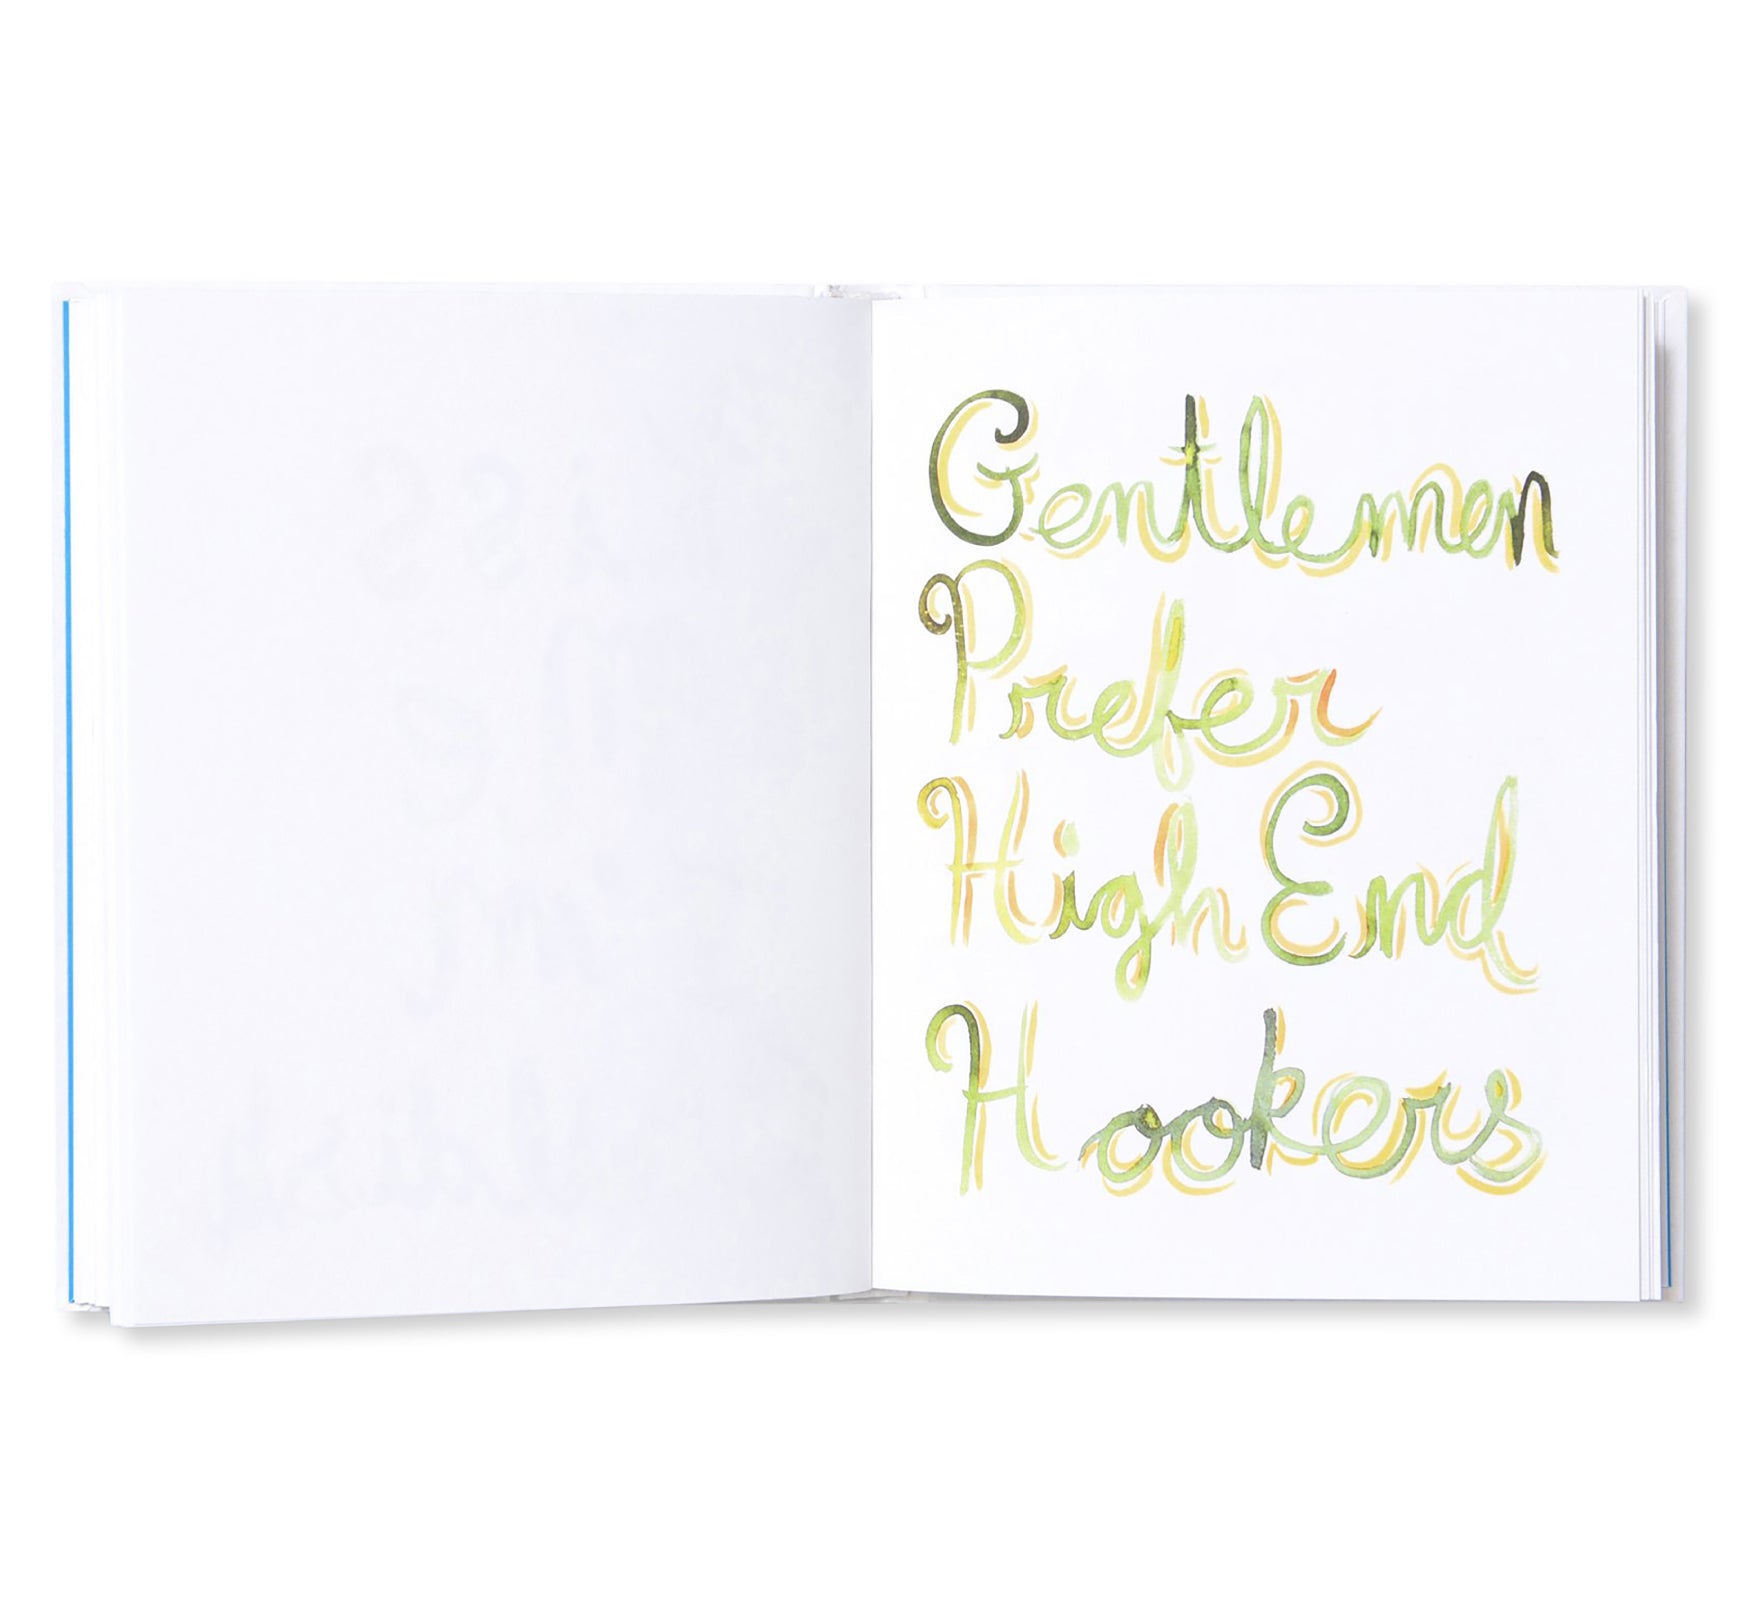 Gentlemen
Prefer
High End
Hookers